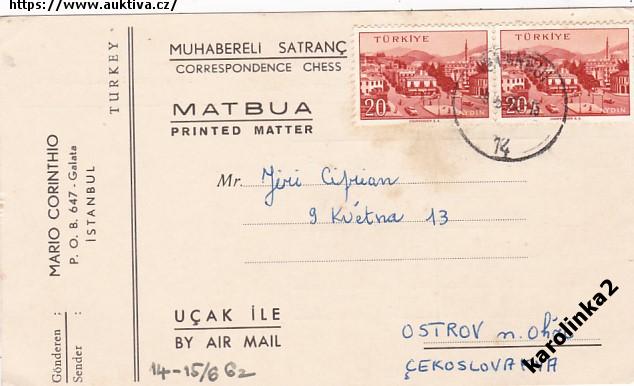 https://www.auktiva.cz/
MUHABERELİ SATRANÇ
CORRESPONDENCE CHESS
MATBUA
PRINTED MATTER
TÜRKİYE
20
AYDIN
TÜRKİYE
20
AYDIN
14
Mr. Jiri Ciprian
9 Května 13
UÇAK İLE
BY AIR MAIL
OSTROV n. Ohří
ÇEKOSLOVANYA
14-15/6 62
TURKEY
MARIO CORINTHIO
P. O. B. 647 - Galata
İSTANBUL
Gönderen :
Sender :
karolinka2